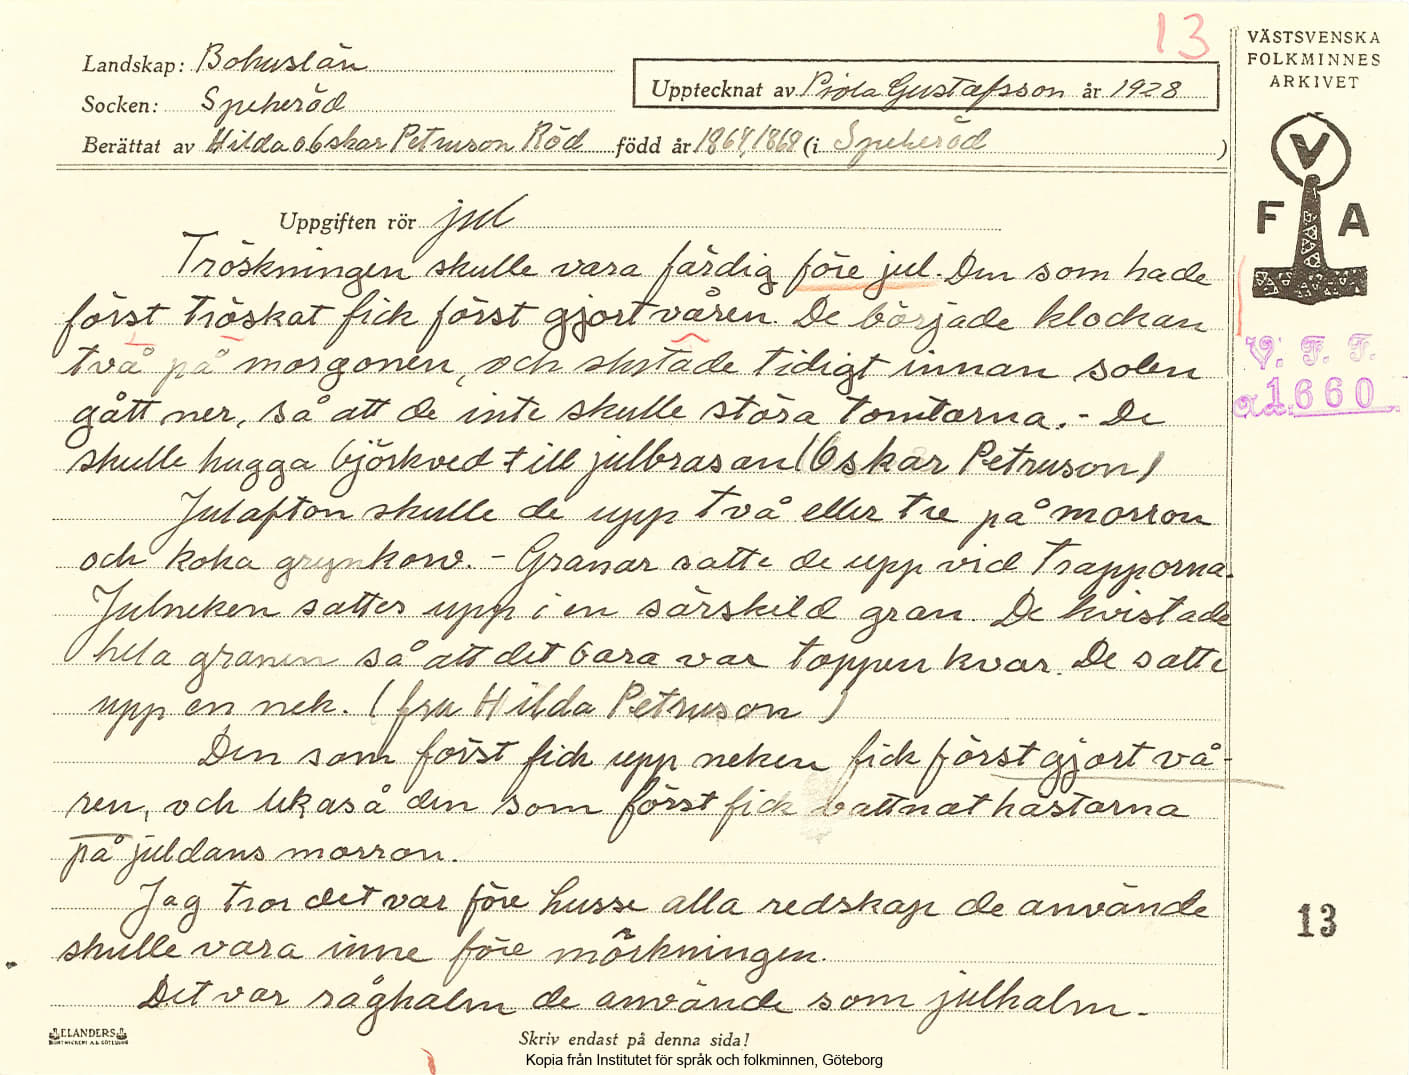 13
VÄSTSVENSKA
FOLKMINNES
ARKIVET
Landskap: Bohuslän
Socken: Spekeröd
Upptecknat av Piola Gustafsson år 1928
Berättat av Hilda o Oskar Petruson Röd född år 1864, 1868 (i Spekeröd )
V
F A
Uppgiften rör jul
Tröskningen skulle vara färdig före jul. Den som hade
först tröskat fick först gjort våren. De började klockan
två på morgonen, och slutade tidigt innan solen
gått ner, så att de inte skulle störa tomtarna. - De
skulle hugga björkved till julbrasan (Oskar Petruson)
Julafton skulle de upp två eller tre på morron
och koka grynkorv. - Granar satte de upp vid trapporna.
Julneken sattes upp i en särskild gran. De kvistade
hela granen så att det bara var toppen kvar. De satte
upp en nek. (fru Hilda Petruson)
Den som först fick upp neken fick först gjort vå-
ren, och likaså den som först fick vattnat hästarna
på juldans morron.
Jag tror det var före husse alla redskap de använde
skulle vara inne före mörkningen.
Det var råghalm de använde som julhalm.
V. F. F.
1660
13
ELANDERS
Skriv endast på denna sida!
Kopia från Institutet för språk och folkminnen, Göteborg